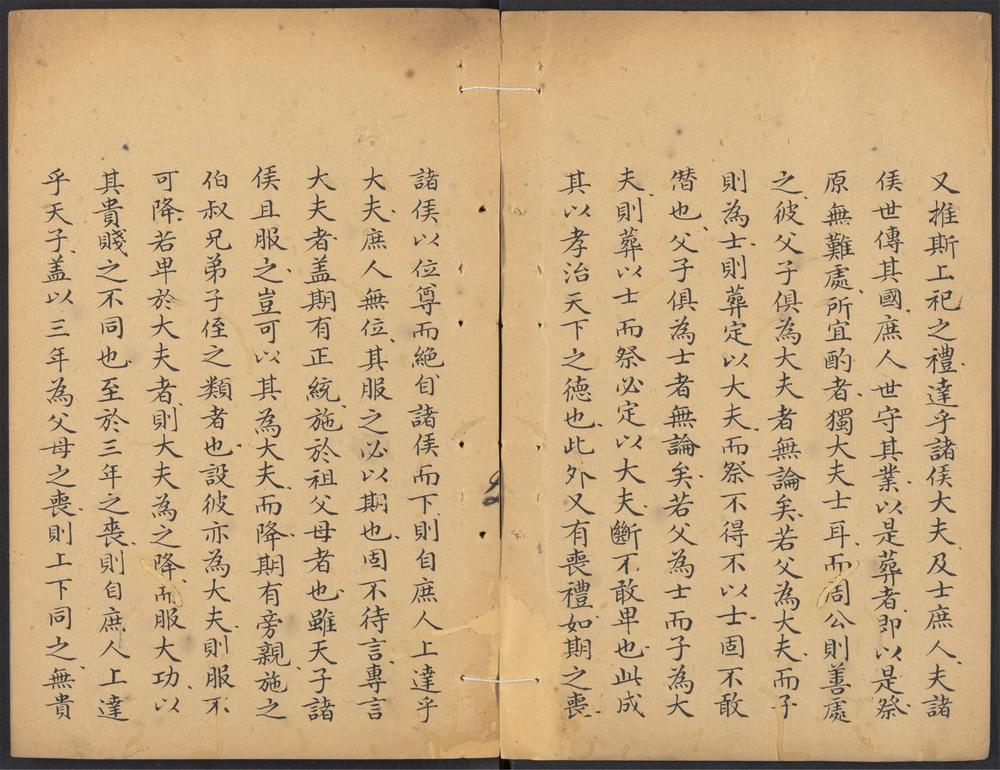 又推斯上祀之禮達乎諸侯大夫及士庶人夫諸
侯世傳其國庶人世守其業以是葬者即以是祭
原無難處所宜酌者獨大夫士耳而周公則善處
之彼父子俱為大夫者無論矣若父為大夫而子
則為士則葬定以大夫而祭不得不以士固不敢
僣也父子俱為士者無論矣若父為士而子為大
夫則葬以士而祭必定以大夫斷不敢卑也此成
其以孝治天下之德也此外又有喪禮如期之喪
諸侯以位尊而絕自諸侯而下則自庶人上達乎
大夫庶人無位其服之必以期也固不待言專言
大夫者盖期有正統施於祖父母者也雖天子諸
侯且服之豈可以其為大夫而降期有旁親施之
伯叔兄弟子侄之類者也設彼亦為大夫則服不
可降若卑於大夫者則大夫為之降而服大功以
其貴賤之不同也至於三年之喪則自庶人上達
乎天子盖以三年為父母之喪則上下同之無貴